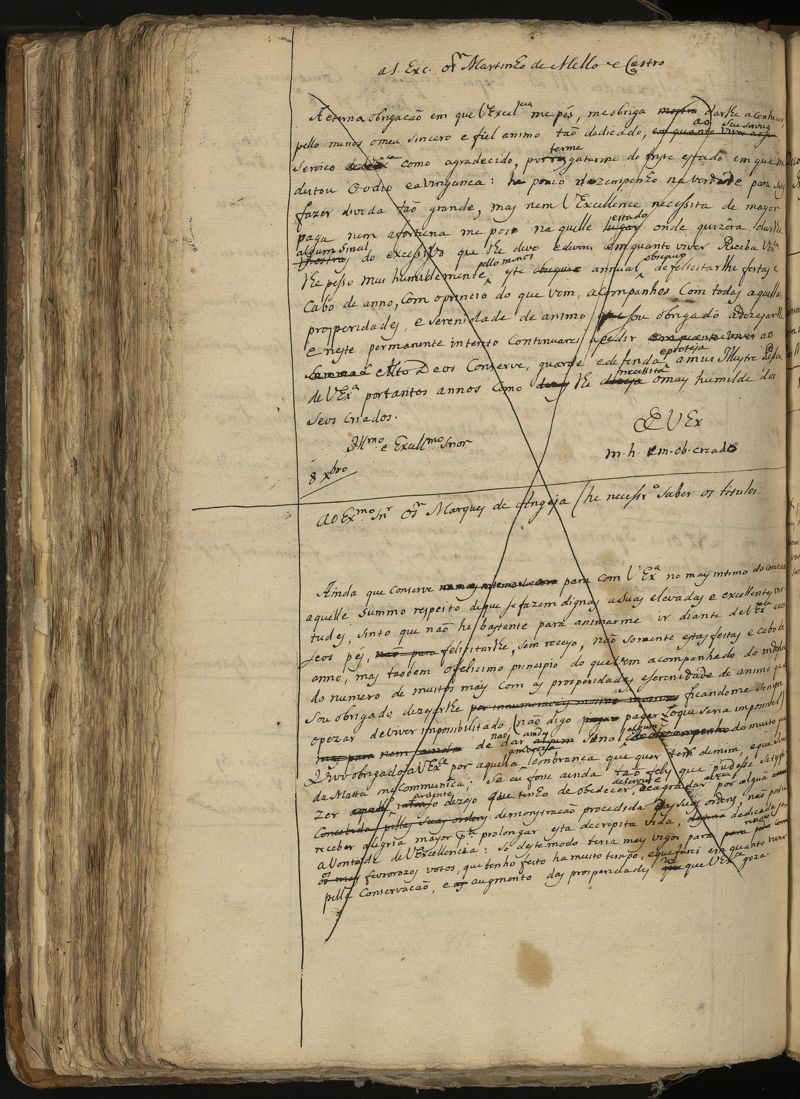 a S. Exc. o Sr Martinho de Mello e Castro
A eterna obrigacão em que V Excel me pós, me obriga mostra darlhe a conhecer,
pello menos o meu sincero e fiel animo tão dedicado, ao seu serviço em quanto viver
serviço como agradecido, por resgatarme do triste estado em que me
deitou o odio e a vinganca: he pouco dezempenho na verdade para
fazer divida tão grande, mas nem V Excellence necessita de mayor
paga nem a fortuna me pos na quelle estado lugar onde quizéra darlhe
algum sinal do excessivo que lhe devo e deverei emquanto viver Receba V Exa
lhe pesso mui humildemente pello menos este annual obsequio de felicitarlhe festas e
Cabo de anno, com o principio do que vem, acompanhos com todas aquellas
prosperidades, e serenidade de animo que sou obrigado a dezejarlhe
e neste permanente intento continuarei a pedir em quanto viver ao
Alto Deos conserve, guarde e defenda e proteja a mui Illustre Pessoa
de V Exa por tantos annos como lhe necessita o mais humilde dos
seos criados.
De V Ex
Illmo e Excellmo Snor
m. h. e m. ob. creado
8 Xbro
Ao Exmo Snr o Sr Marques de Angeja (he necessro saber os titulos
Ainda que conserve para com V Exa no mais intimo do coracão
aquelle summo respeito de que se fazem dignas a suas elevadas e excellentes vir
tudes, sinto que não he bastante para animarme ir diante de V Exa e
seos pés, não para felicitarlhe, sem receyo, não somente estas festas e cabo de
anno, mas tãobem o felicissimo principio do que vem acompanhado do
do numero de muitos mais com as prosperidades e serenidade de animo que
sou obrigado dezejarlhe ficandome sempre
o pezar de viver imposibilitado (não digo pagar pagar, o que seria imposivel)
mas para nem de dar ainda algum sinal de dezempenho do muito que
Vivo obrigado a V Exa por aquella amorosa lembrança que quer tenha de mim, e que
da Matta me communica; se eu fose ainda tão felis que pudesse satisfa
zer o ardente dezejo que tenho de obedecer, e agradar por alguã
demonstracão procedida das suas ordens, não podia
receber alegria mayor pa prolongar esta decrepita vida, dedicada ja
a vontade de V Excellencia: so deste modo teria mais vigor para com
fervorozos votos, que tenho feito ha muito tempo, e que farei em quanto viver
pella conservacão, e augmento das prosperidades que V Exa goza.